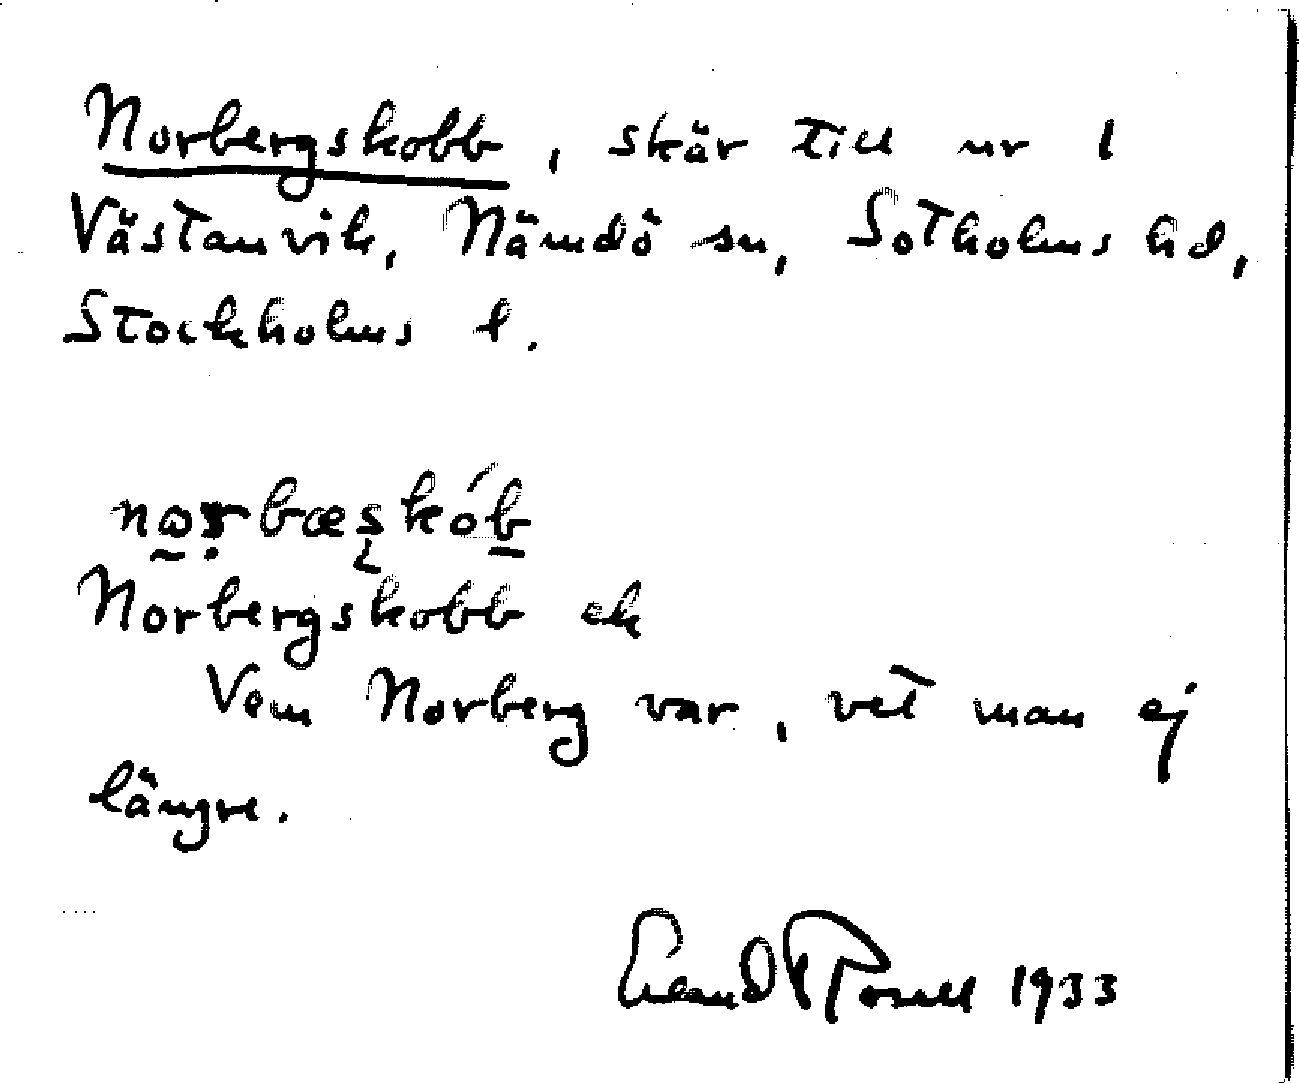 Norbergskobb, skär till nr 1
Västanvik, Nämdö sn, Sotholms hd,
Stockholms l.
Norbergskobb ek
Vem Norberg var, vet man ej
längre.
Erland Rosell 1933